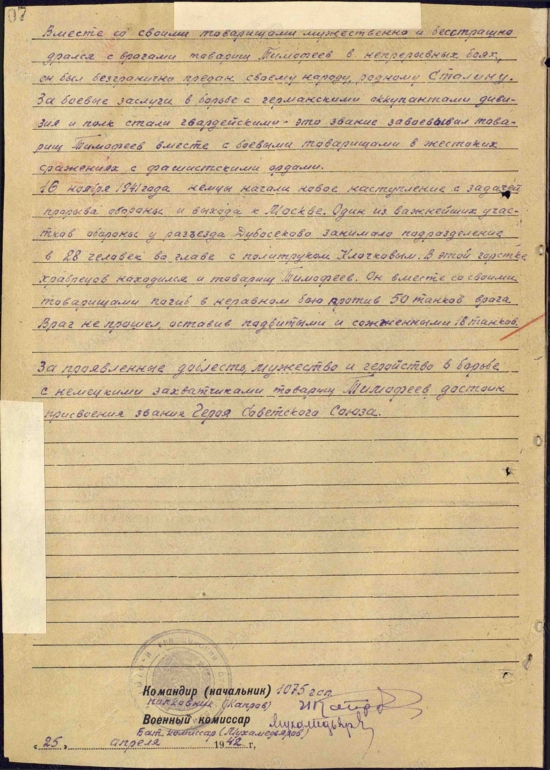 Вместе со своими товарищами мужественно и бесстрашно
дрался с врагами товарищ Тимофеев в непрерывных боях,
он был безгранично предан своему народу, родному Сталину.
За боевые заслуги в борьбе с германскими оккупантами диви-
зия и полк стали гвардейскими - это звание завоевывал това-
рищ Тимофеев вместе с боевыми товарищами в жестоких
сражениях с фашистскими ордами.
16 ноября 1941 года немцы начали новое наступление с задачей
прорыва обороны и выхода к Москве. Один из важнейших учас-
тков обороны у разъезда Дубосеково занимало подразделение
в 28 человек во главе с политруком Клочковым. В этой горстке
храбрецов находился и товарищ Тимофеев. Он вместе со своими
товарищами погиб в неравном бою против 50 танков врага.
Враг не прошел, оставив подбитыми и сожженными 18 танков.
За проявленные доблесть, мужество и геройство в борьбе
с немецкими захватчиками товарищ Тимофеев достоин
присвоения звания Героя Советского Союза.
Командир (начальник) 1075 гсп
полковник (Капров)
Военный комиссар
Бат. комиссар (Мухамедьяров)
„25„ апреля 1942 г.